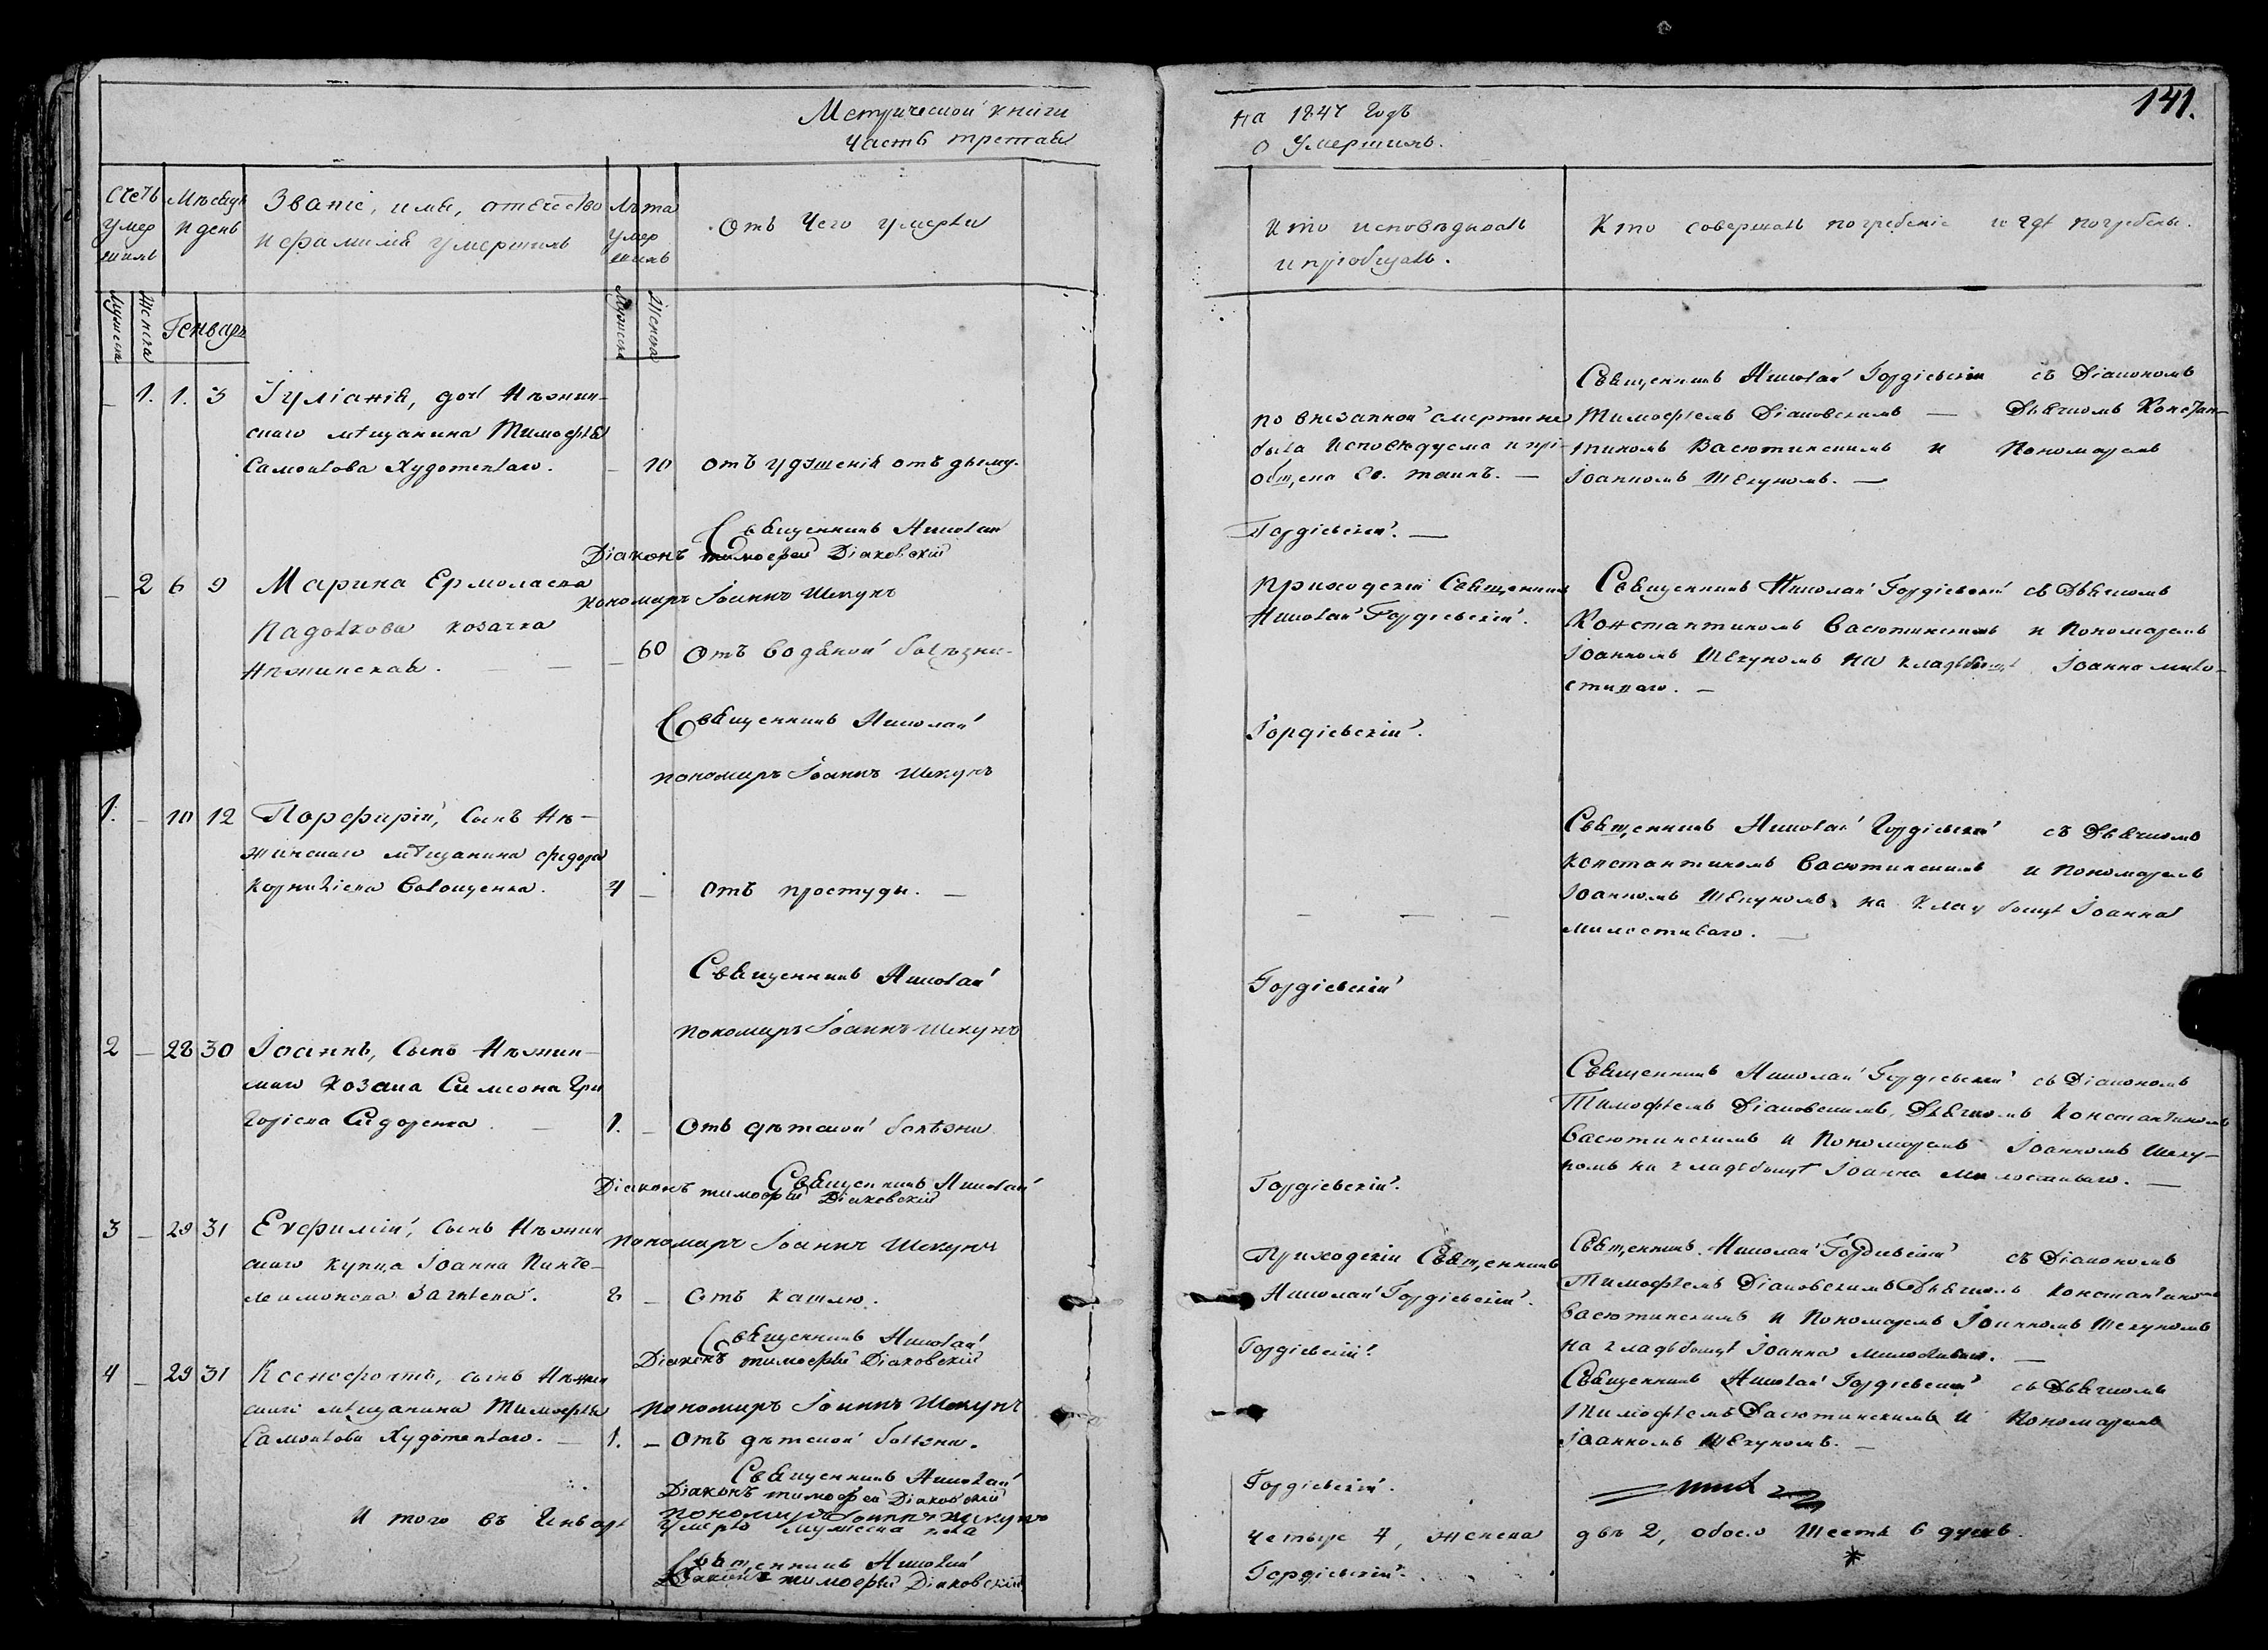 Метрической книги
Часть третая
Счетъ умершихъ
Мѣсяцъ и день
Званіе, имя, отечество и фамилія умершихъ
Лѣта умершихъ
Отъ чего умерли
Мужеска
Женска
Генварь
Мужеска
Женска
– 1. 1. 3 Іуліанія, дочь Нѣжин-
скаго мѣщанина Тимофѣя
Самойлова Худотеплаго. – 10 отъ удушенія отъ дыму.
Священникъ Николай
Діаконъ Тимофей Діаковскій
– 2 6 9 Марина Ермолаева
пономарь Іоаннъ Шекунъ
козачка
Нѣжинская. – 60 Отъ водяной болѣзни.
Священникъ Николай
пономарь Іоаннъ Шекунъ
1. – 10 12 Порфирій, сынъ Нѣ-
жинскаго мѣщанина Федора
Корниліева 4 – Отъ простуды. –
Священникъ Николай
пономарь Іоаннъ Шекунъ
2 – 28 30 Іоаннъ, сынъ Нѣжин-
скаго козака Симеона Гри
горіева Сидоренка. – 1. – Отъ дѣтской болѣзни
Священникъ Николай
Діаконъ Тимофей Діаковскій
3 – 29 31 Евфимій, сынъ Нѣжин
пономарь Іоаннъ Шекунъ
скаго купца Іоанна Панте-
леимонова – Отъ кашлю.
Священникъ Николай
Діаконъ Тимофей Діаковскій
4 – 29 31 Ксенофонтъ, сынъ Нѣжин
скаго мѣщанина Тимофѣя
пономарь Іоаннъ Шекунъ
Самойлова Худотеплаго. – 1. – Отъ дѣтской болѣзни.
Священникъ Николай
Діаконъ Тимофей Діаковскій
пономарь Іоаннъ Шекунъ
И того въ Генварѣ умерло мужеска пола
Священникъ Николай
Діаконъ Тимофей Діаковскій
141.
На 1847 годъ
о умершихъ.
Кто исповѣдывалъ
и пріобщалъ.
Кто совершалъ погребеніе и гдѣ погребены.
по внезапной смерти не
была исповѣдуема и прі-
общена Св. таинъ. –
Священникъ Николай Гордіевскій съ Діакономъ
Тимофѣемъ Діаковскимъ – Дьячкомъ Констан-
тиномъ Васютинскимъ и Пономаремъ
Іоанномъ Шекуномъ. –
Гордіевскій. –
Приходскій Священникъ
Николай Гордіевскій.
Священникъ Николай Гордіевскій съ Дьячкомъ
Константиномъ Васютинскимъ и Пономаремъ
Іоанномъ Шекуномъ на кладбищѣ Іоанна Мило-
стиваго. –
Гордіевскій.
– – –
Священникъ Николай Гордіевскій съ Дьячкомъ
Константиномъ Васютинскимъ и Пономаремъ
Іоанномъ Шекуномъ на кладбищѣ Іоанна
Милостиваго. –
Гордіевскій
Священникъ Николай Гордіевскій съ Діакономъ
Тимофѣемъ Діаковскимъ, Дьячкомъ Константиномъ
Васютинскимъ и Пономаремъ Іоанномъ Шеку-
номъ на кладбищѣ Іоанна Милостиваго. –
Гордіевскій.
Приходскій Священникъ
Николай Гордіевскій.
Священникъ Николай Гордіевскій съ Діакономъ
Тимофѣемъ Діаковскимъ Дьячкомъ Константиномъ
Васютинскимъ и Пономаремъ Іоанномъ Шекуномъ
на кладбищѣ Іоанна Милостиваго. –
Гордіевскій.
Священникъ Николай Гордіевскій съ Дьячкомъ
Тимофѣемъ Васютинскимъ и Пономаремъ
Іоанномъ Шекуномъ. –
Гордіевскій.
четыре 4, женска двѣ 2, обоего шесть 6 душъ.
Гордіевскій.